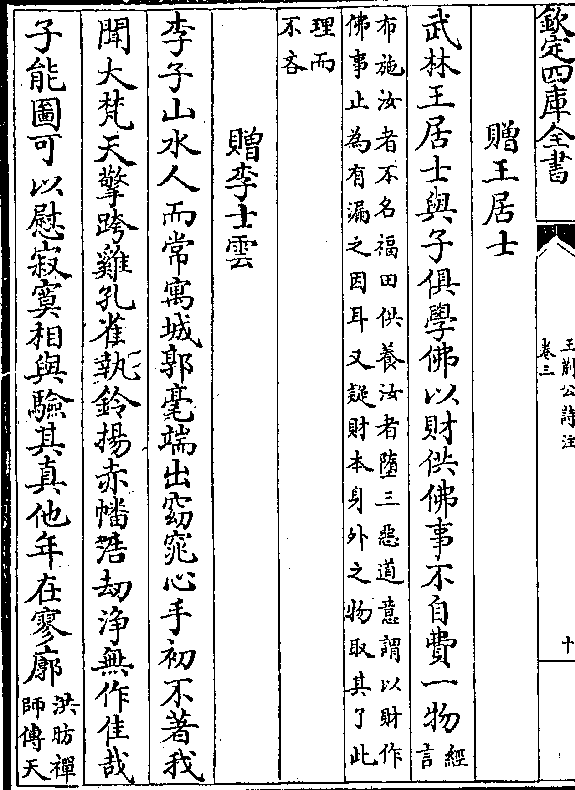 欽定四庫全書
王荆公詩注
卷三
十
贈王居士
武林王居士與子俱學佛以財供佛事不自費一物經言
布施汝者不名福田供養汝者墮三惡道意謂以財作
佛事止為有漏之因耳又疑財本身外之物取其了此
理而不吝
贈李士雲
李子山水人而常寓城郭毫端出窈窕心手初不著我
聞大梵天擎跨雞孔雀執鈴揚赤幡浩劫淨無作佳哉
子能圖可以慰寂寞相與驗其真他年在寥廓洪昉禪
師傳天